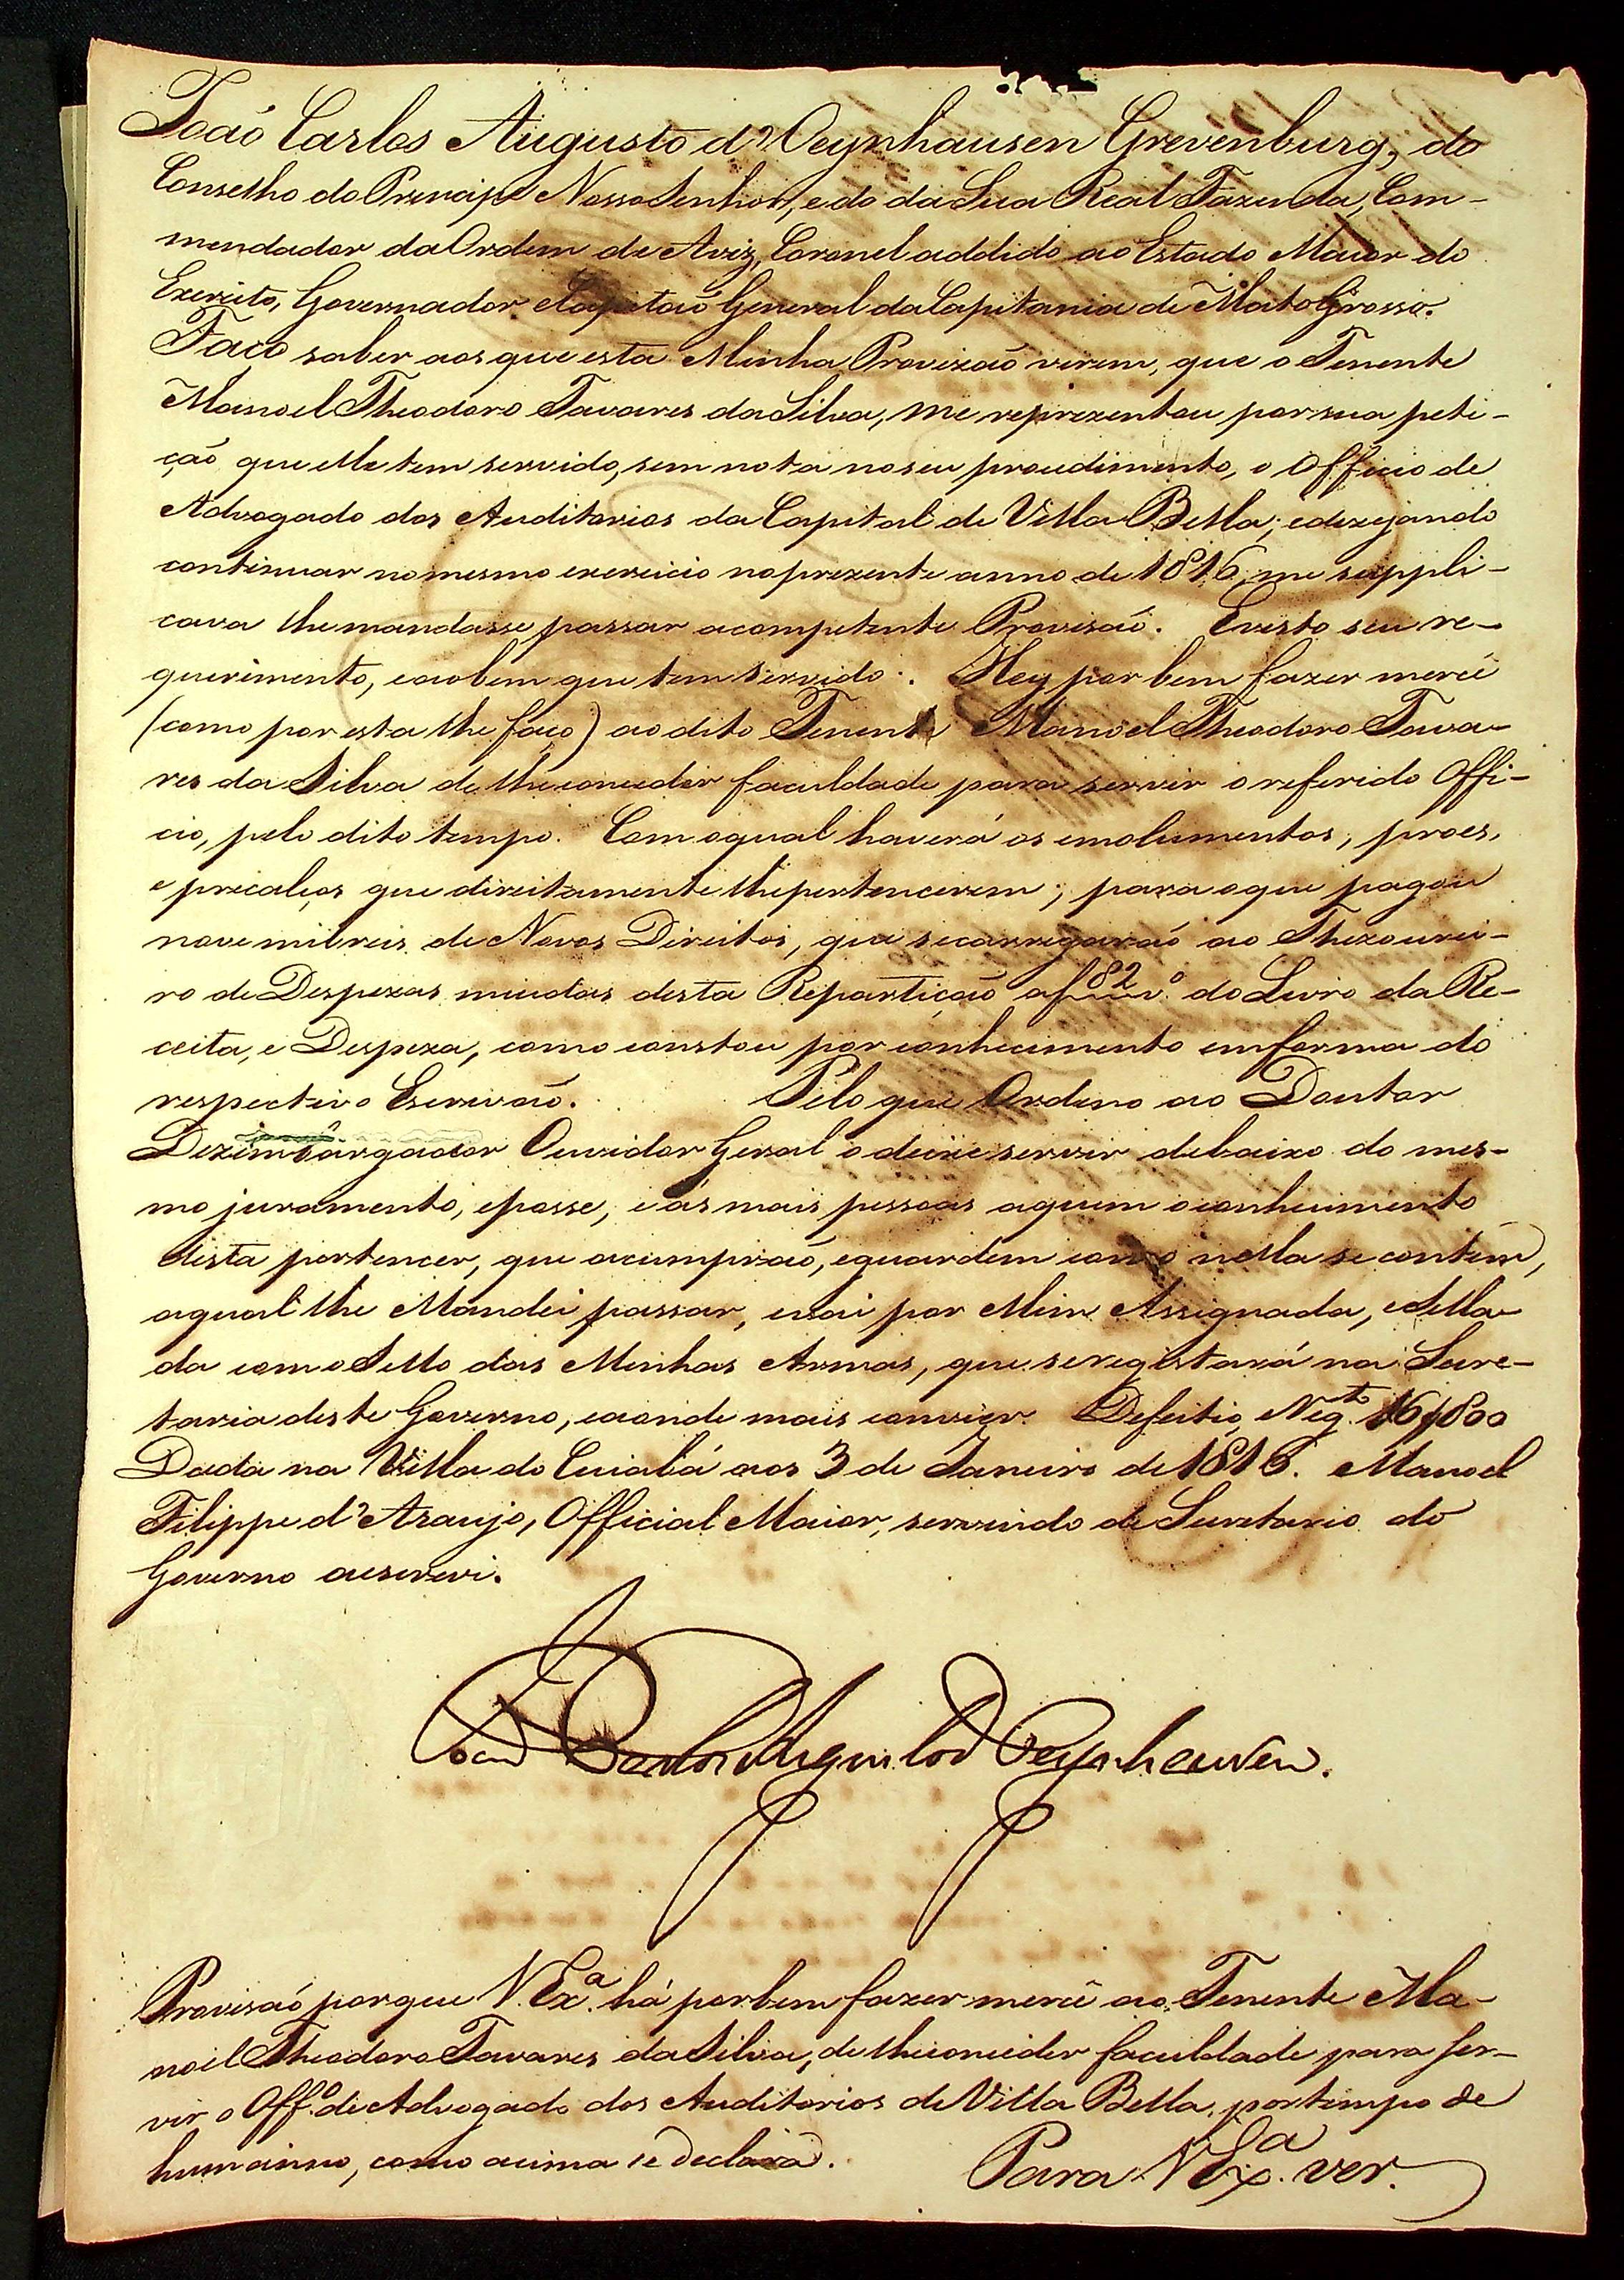 João Carlos Augusto d'Oeynhausen Grevenburg, do
Conselho do Principe Nosso Senhor, e do da Sua Real Fazenda, Com-
mendador da Ordem de Aviz, Coronel addido ao Estado Maior do
Exercito, Governador e Capitaõ General da Capitania de Mato Grosso.
Faço saber aos que esta Minha Provizaõ virem, que o Tenente
Manoel Theodoro Tavares da Silva, me reprezentou por sua peti-
çaõ que elle tem servido, sem nota no seu procedimento, o Officio de
Advogado dos Auditorios da Capital de Villa Bella; e dezejando
continuar no mesmo exercicio no prezente anno de 1816, me suppli-
cava lhe mandasse passar a competente Provisaõ. E visto seu re-
querimento, e ao bem que tem servido. Hey por bem fazer mercê
(como por esta lhe faço) ao dito Tenente Manoel Theodoro Tava-
res da Silva de lhe conceder faculdade para servir o referido Offi-
cio, pelo dito tempo. Com o qual haverá os emolumentos, proes,
e precalços que direitamente lhe pertencerem; para o que pagou
nove mil reis de Novos Direitos, que se carregaraõ ao Thezourei-
ro de Despezas miudas desta Repartiçaõ a f 82 vº. do Livro da Re-
ceita, e Despeza, como constou por conhecimento em forma do
respectivo Escrivaõ. Pelo que Ordeno ao Doutor
Dezembargador Ouvidor Geral o deixe servir debaixo do mes-
mo juramento, e posse, e ás mais pessoas a quem o conhecimento
desta pertencer, que a cumpraõ, e guardem como nella se contém,
a qual lhe Mandei passar, e vai por Mim Assignada, e Sella-
da com o Sello das Minhas Armas, que se registará na Secre-
taria deste Governo, e aonde mais convier. Neg.to 16$800
Dada na Villa do Cuiabá aos 3 de Janeiro de 1816. Manoel
Filippe d'Araujo, Official Maior, servindo de Secretario do
Governo a escrevi.
João Carlos Augusto d'Oeynhausen.
Provisaõ porque V. Exª. há por bem fazer mercê ao Tenente Ma-
noel Theodoro Tavares da Silva, de lhe conceder faculdade para ser-
vir o Offº. de Advogado dos Auditorios de Villa Bella, por tempo de
hum anno, como acima se declara.
Para V Exª. ver.